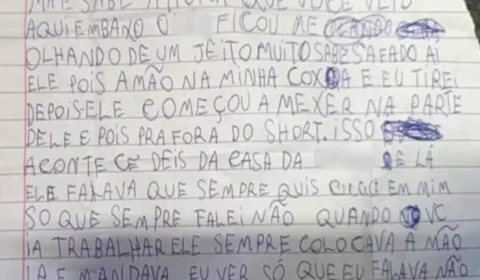 AQUI EMBAXO O FICOU ME
OLHANDO DE UM JEITO MUITO SAFADO AI
ELE POIS A MÃO NA MINHA COXA E EU TIREI
DEPOIS ELE COMEÇOU A MEXER NA PARTE
DELE E POIS PRA FORA DO SHORT. ISSO
ACONTECE DEIS DA CASA DA E LÁ
ELE FALAVA QUE SEMPRE QUIS EM MIM
SO QUE SEMPRE FALEI NÃO QUANDO VC
IA TRABALHAR ELE SEMPRE COLOCAVA A MÃO
LA E MANDAVA EU VER SÓ QUE EU FALAVA NÃO